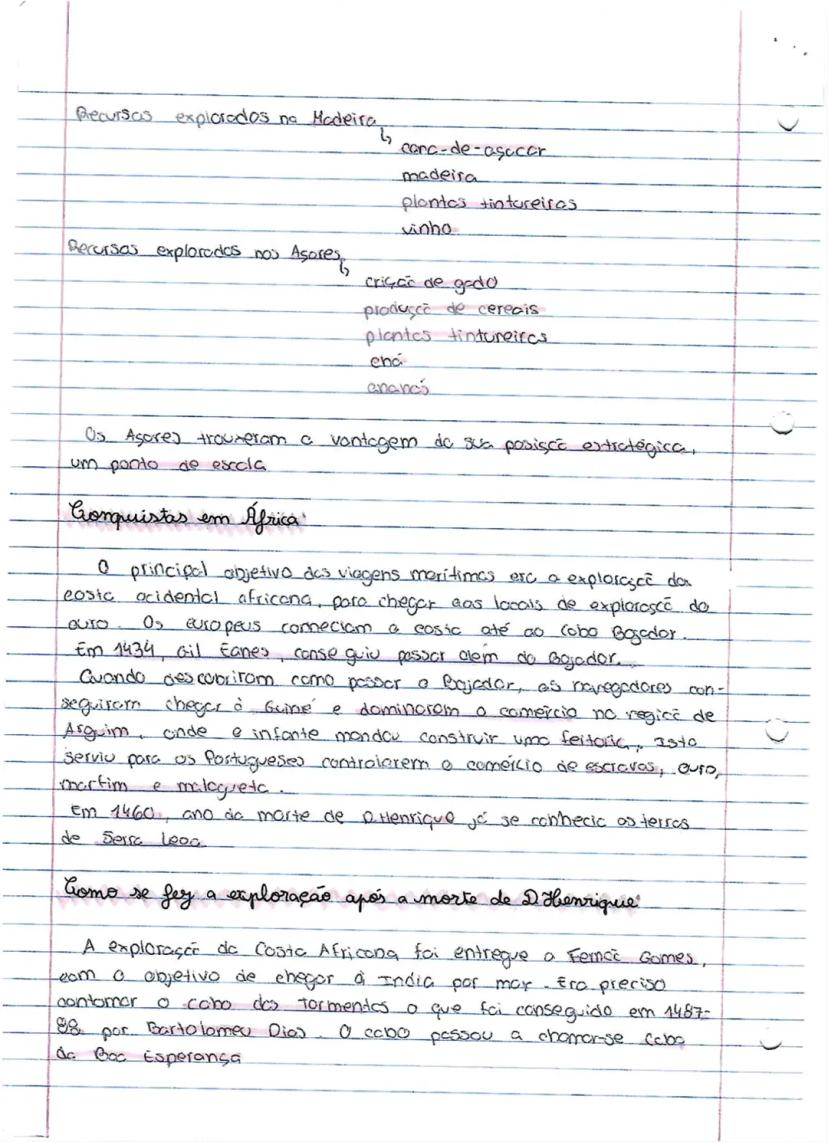 Recursos explorados na Madeira
↳ cana-de-açucar
madeira
plantas tintureiras
vinho
Recursos explorados nos Açores
↳ criação de gado
produção de cereais
plantas tintureiras
chá
ananás
Os Açores trouxeram a vantagem da sua posição estratégica,
um ponto de escala
Conquistas em África:
O principal objetivo das viagens marítimas era a exploração da
costa ocidental africana, para chegar aos locais de exploração do
ouro. Os europeus conheciam a costa até ao Cabo Bojador.
Em 1434, Gil Eanes, conseguiu passar alem do Bojador.
Quando descobriram como passar o Bojador, os navegadores con-
seguiram chegar à Guiné e dominaram o comércio na região de
Arguim, onde o infante mandou construir uma feitoria, Isto
serviu para os Portugueses controlarem o comércio de escravos, ouro,
marfim e malagueta.
Em 1460, ano da morte de D.Henrique já se conhecia as terras
de Serra Leoa
Como se fez a exploração após a morte de D.Henrique:
A exploração da Costa Africana foi entregue a Fernão Gomes,
com o objetivo de chegar à Índia por mar. Era preciso
contornar o cabo das Tormentas o que foi conseguido em 1487-
88 por Bartolomeu Dias. O cabo passou a chamar-se Cabo
da Boa Esperança